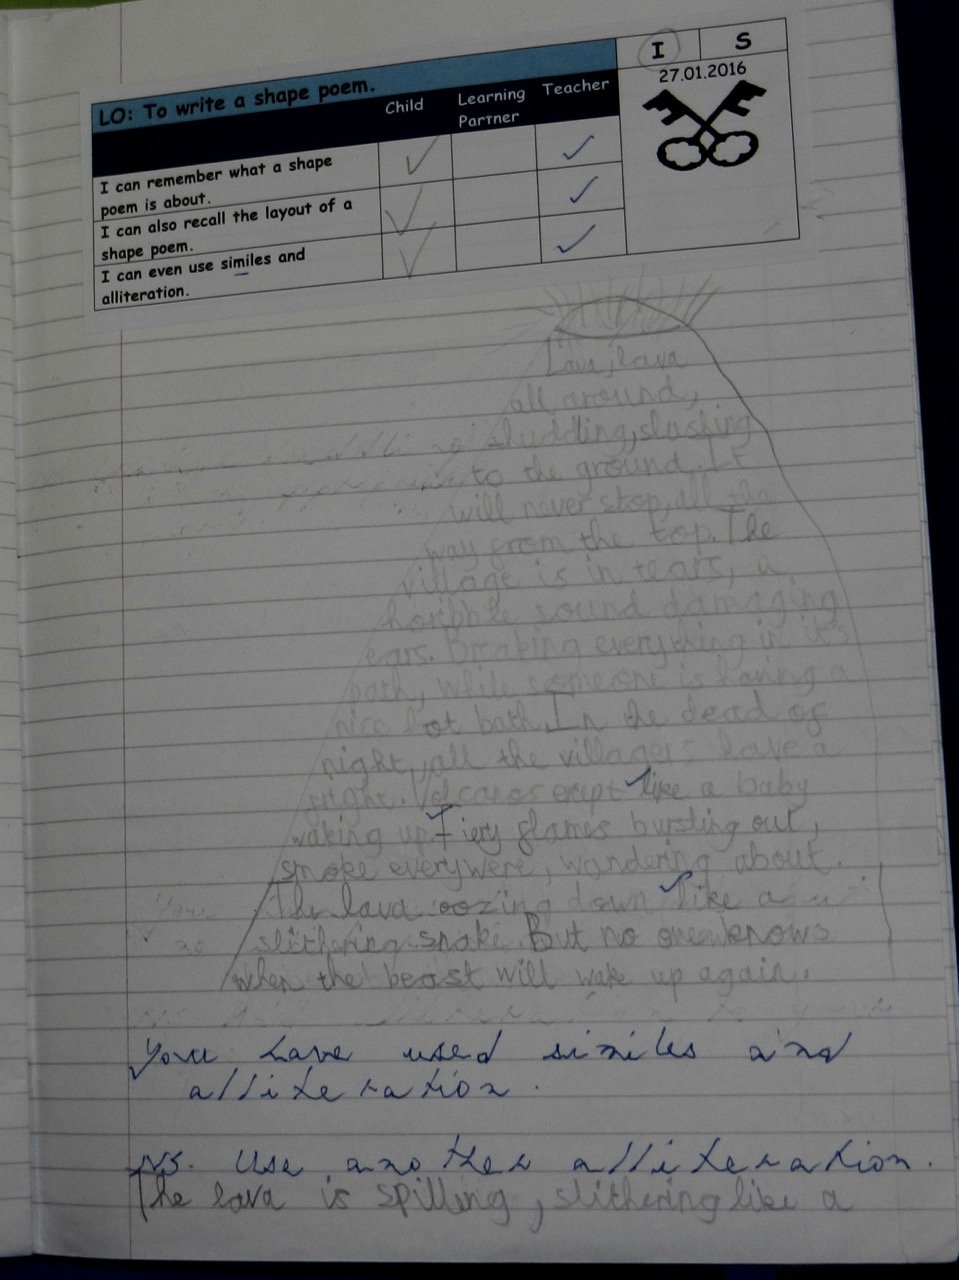 LO: To write a shape poem.
Child
Learning Partner
Teacher
I S
27.01.2016
I can remember what a shape
poem is about.
I can also recall the layout of a
shape poem.
I can even use similes and
alliteration.
Lava, lava
all around,
shudding, slushing
to the ground. It
will never stop, all the
way from the top. The
village is in tears, a
horibble sound damaging
ears. Breaking everything in its
path, while someone is having a
nice hot bath. In the dead of
night, all the villagers have a
fright. Volcanos erupt like a baby
waking up. Fiery flames bursting out,
smoke everywere, wandering about.
The lava oozing down like a
slithering snake. But no one knows
when the beast will wake up again.
You have used similes and
alliteration.
NS. Use another alliteration.
The lava is spilling, slithering like a